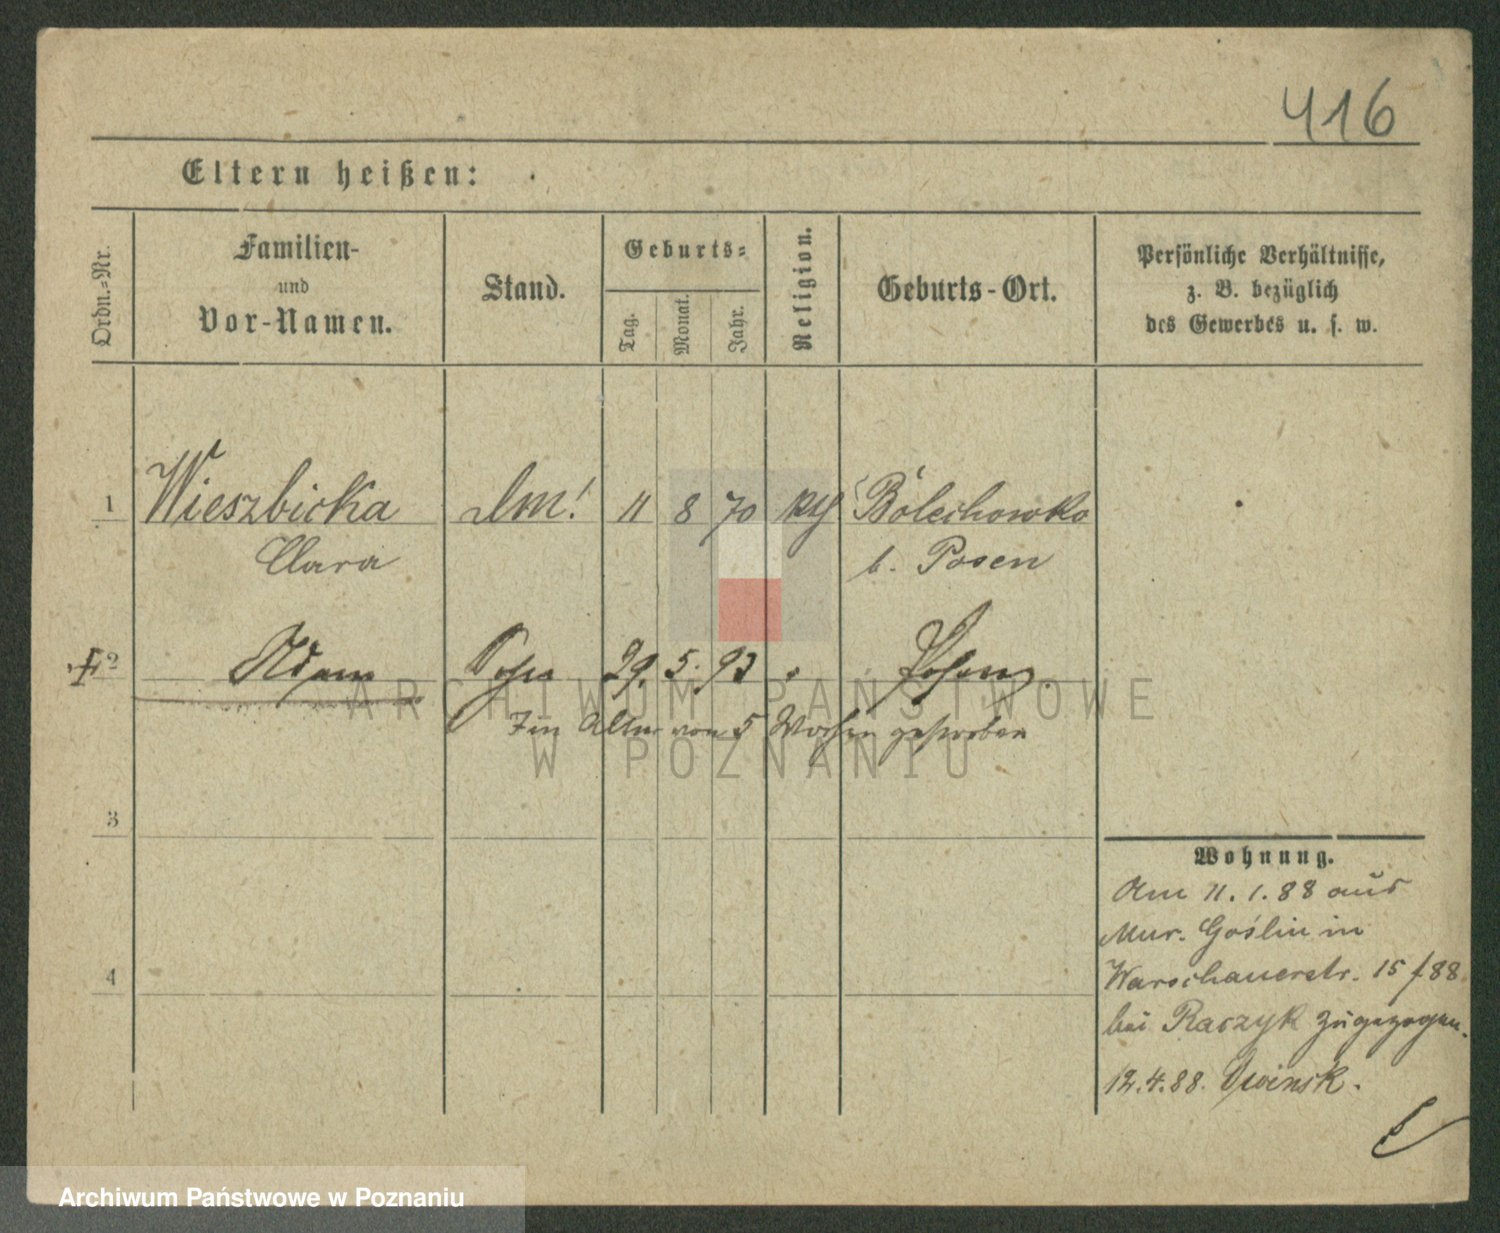 416
Eltern heißen:
Ordn.=Nr.
Familien-
und
Vor-Namen.
Stand.
Geburts=
Tag.
Monat.
Jahr.
Religion.
Geburts-Ort.
Persönliche Verhältnisse,
z. B. bezüglich
des Gewerbes u. s. w.
1 Wieszbicka 11 8 70 Bolechowko
Clara b. Posen
2 Adam 29. 5. 93 Posen
Im Alter von 5 Wochen gestorben
3
4
Wohnung.
Am 11. 1. 88 aus
Mur. Goślin in
Warschauerstr. 15 f 88
bei Raczyk zugezogen.
12. 4. 88. Owinsk.
ARCHIWUM PAŃSTWOWE
W POZNANIU
Archiwum Państwowe w Poznaniu